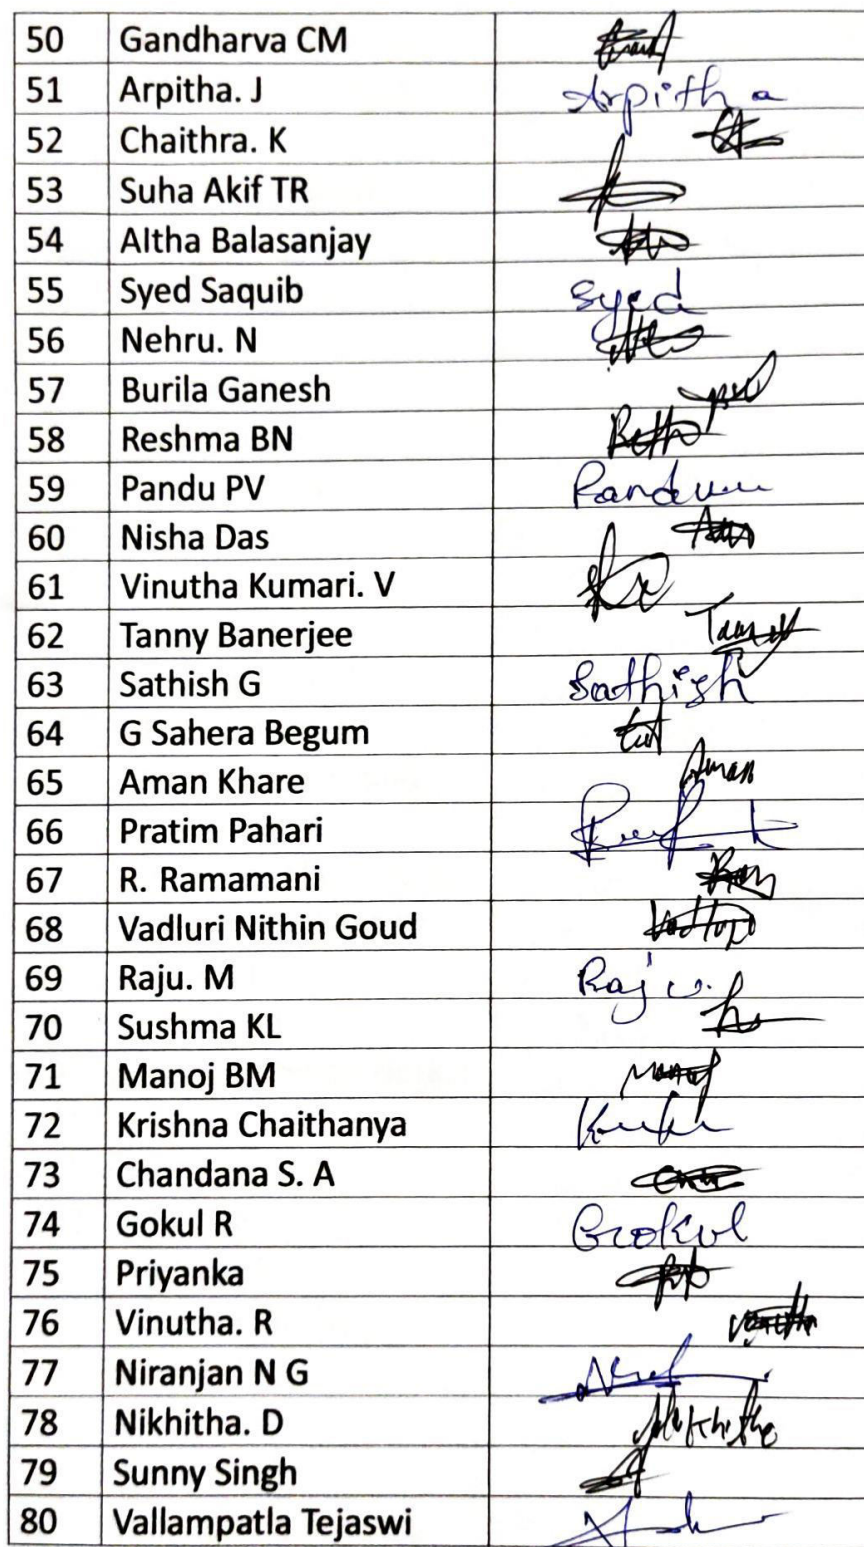 50 Gandharva CM
51 Arpitha. J Arpitha
52 Chaithra. K
53 Suha Akif TR
54 Altha Balasanjay
55 Syed Saquib Syed
56 Nehru. N
57 Burila Ganesh
58 Reshma BN
59 Pandu PV Pandu
60 Nisha Das
61 Vinutha Kumari. V
62 Tanny Banerjee
63 Sathish G Sathish
64 G Sahera Begum
65 Aman Khare Aman
66 Pratim Pahari
67 R. Ramamani
68 Vadluri Nithin Goud
69 Raju. M Raju.
70 Sushma KL
71 Manoj BM Manoj
72 Krishna Chaithanya
73 Chandana S. A
74 Gokul R Gokul
75 Priyanka
76 Vinutha. R
77 Niranjan N G
78 Nikhitha. D Nikhitha
79 Sunny Singh
80 Vallampatla Tejaswi